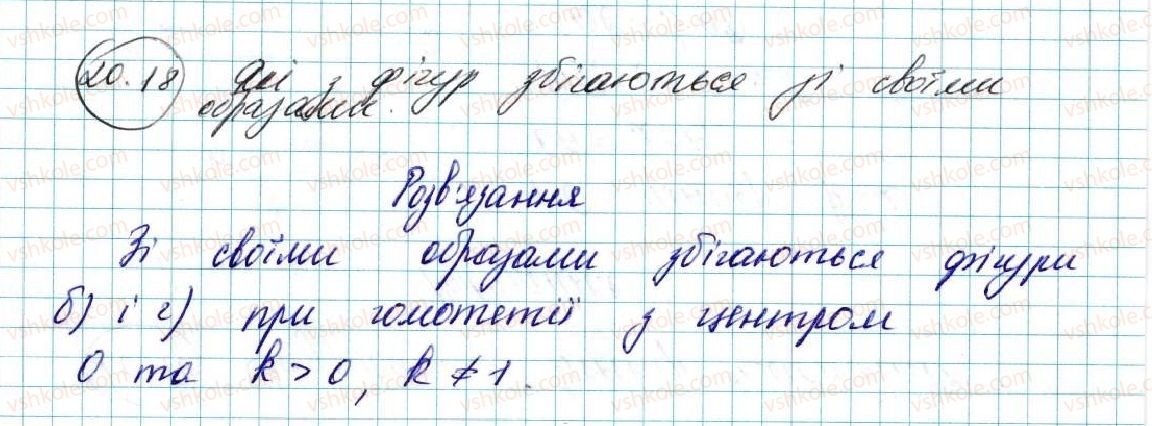 20.18 Які з фігур збігаються зі своїми
образами.
Розв'язання
Зі своїми образами збігаються фігури
б) і г) при гомотетії з центром
О та k > 0, k ≠ 1.